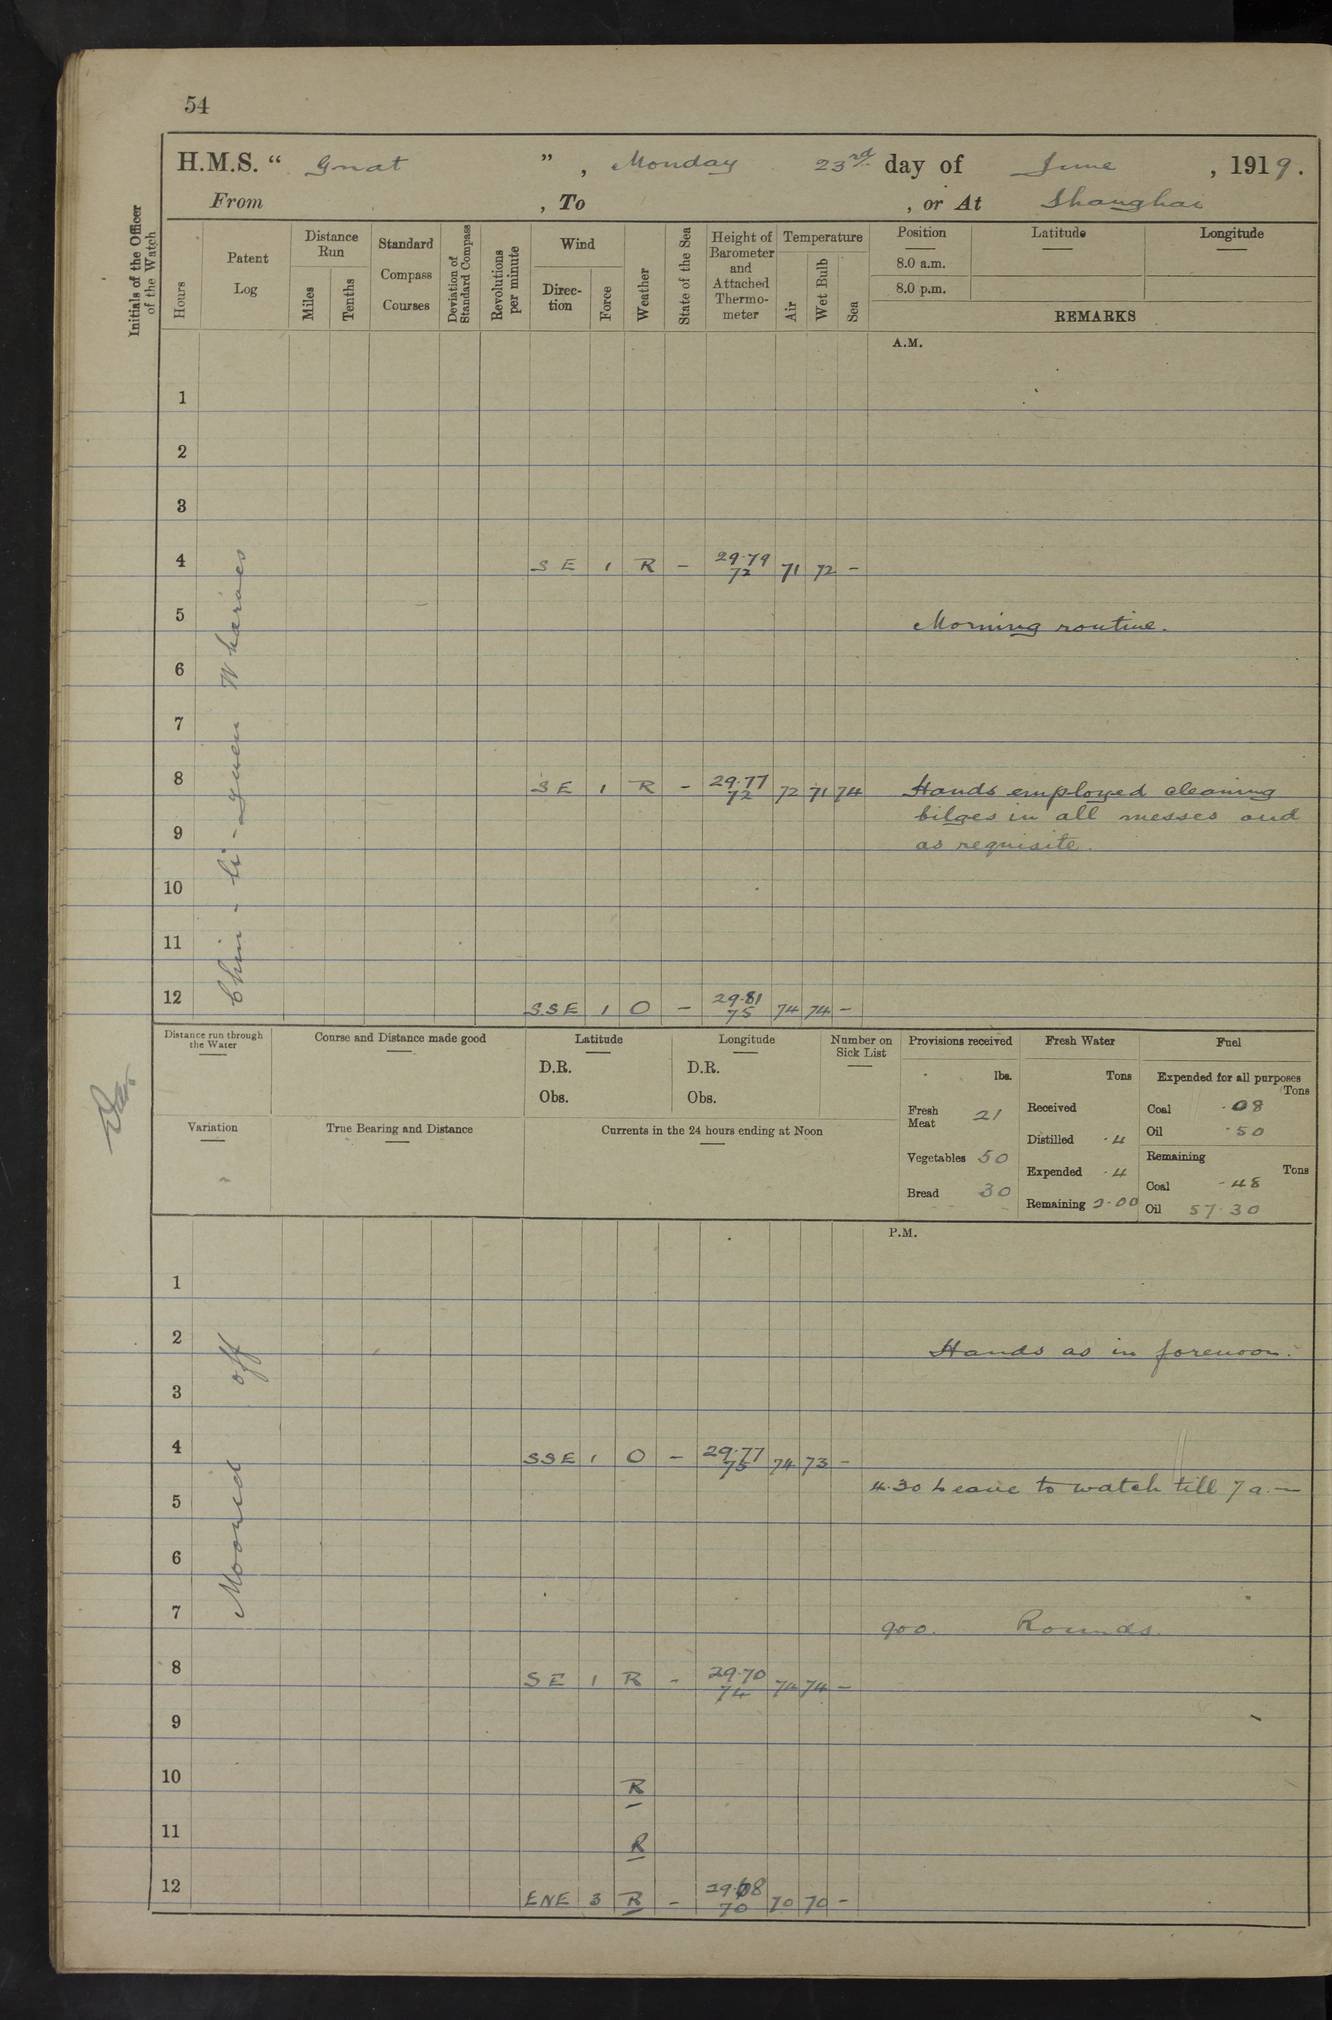 54
H.M.S. “ Gnat ” , Monday 23rd day of June , 1919.
From , To , or At Shanghai
Initials of the Officer of the Watch
Hours
Patent Log
Distance Run
Miles
Tenths
Standard Compass Courses
Deviation of Standard Compass
Revolutions per minute
Wind
Direc-tion
Force
Weather
State of the Sea
Height of Barometer and Attached Thermo-meter
Temperature
Air
Wet Bulb
Sea
Position
8.0 a.m.
8.0 p.m.
Latitude
Longitude
REMARKS
A.M.
1
2
3
4 SE 1 R - 29.79 72 71 72 -
5 Morning routine.
6
7
8 SE 1 R - 29.77 72 72 71 74 Hands employed cleaning
bilges in all messes and
9
as requisite.
10
11
12 SSE 1 O - 29.81 75 74 74 -
Distance run through the Water
Course and Distance made good
Latitude
D.R.
Obs.
Longitude
D.R.
Obs.
Number on Sick List
Provisions received
lbs.
Fresh Meat 21
Vegetables 50
Bread 30
Fresh Water
Tons
Received
Distilled .4
Expended .4
Remaining 2.00
Fuel
Expended for all purposes
Tons
Coal .08
Oil .50
Remaining
Tons
Coal .48
Oil 57.30
Variation
True Bearing and Distance
Currents in the 24 hours ending at Noon
P.M.
Moored off
1
2 Hands as in forenoon.
3
4 SSE 1 O - 29.77 75 74 73 -
4.30 Leave to watch till 7 a.—
5
6
7 900. Rounds.
8 SE 1 R - 29.70 74 74 74 -
9
10 R
11 R
12 ENE 3 R - 29.68 70 70 70 -